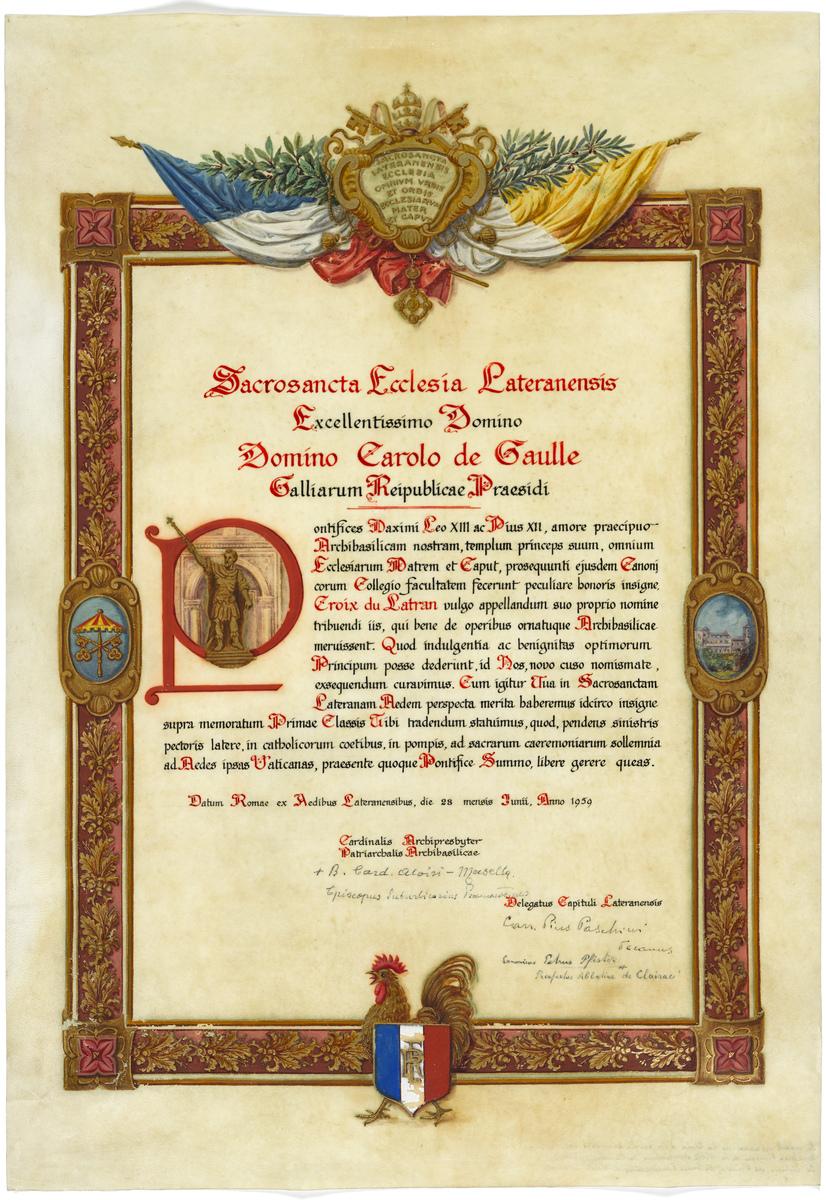 SACROSANCTA
LATERANENSIS
ECCLESIA
OMNIVM VRBIS
ET ORBIS
ECCLESIARVM
MATER
ET CAPVT
Sacrosancta Ecclesia Lateranensis
Excellentissimo Domino
Domino Carolo de Gaulle
Galliarum Reipublicae Praesidi
Pontifices Maximi Leo XIII ac Pius XII, amore praecipuo
Archibasilicam nostram, templum princeps suum, omnium
Ecclesiarum Matrem et Caput, prosequunti ejusdem Canoni
corum Collegio facultatem fecerunt peculiare honoris insigne,
Croix du Latran vulgo appellandum suo proprio nomine
tribuendi iis, qui bene de operibus ornatuque Archibasilicae
meruissent. Quod indulgentia ac benignitas optimorum
Principum posse dederunt, id Nos, novo cuso nomismate,
exsequendum curavimus. Cum igitur Tua in Sacrosanctam
Lateranam Aedem perspecta merita haberemus idcirco insigne
supra memoratum Primae Classis Tibi tradendum statuimus, quod, pendens sinistris
pectoris latere, in catholicorum coetibus, in pompis, ad sacrarum caeremoniarum sollemnia
ad Aedes ipsas Vaticanas, praesente quoque Pontifice Summo, libere gerere queas.
Datum Romae ex Aedibus Lateranensibus, die 28 mensis Junii, Anno 1959
Cardinalis Archipresbyter
Patriarchalis Archibasilicae
+ B. Card. Aloisi - Masella.
Episcopus Suburbicarius
Delegatus Capituli Lateranensis
Can. Pius Paschini
Decanus
Canonicus Petrus Pfister
Praefectus Abbatiae "de Clairac"
RF